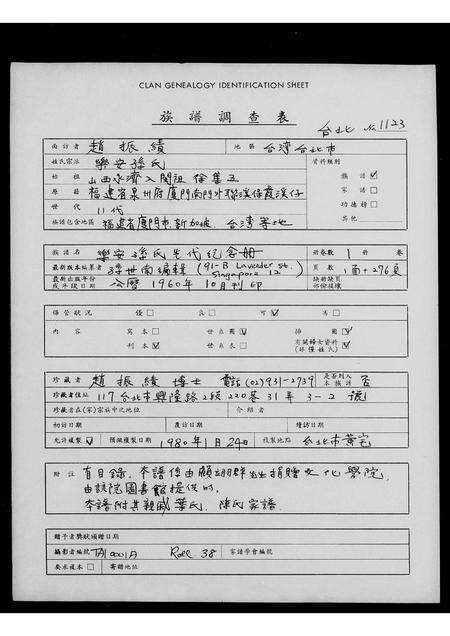 CLAN GENEALOGY IDENTIFICATION SHEET
族譜調查表
台北 No 1123
面訪者 趙振績 地區 台湾台北市
姓氏宗派 樂安孫氏 資料類別
始祖 山西永濟入閩祖 族譜 ☑
原籍 福建省泉州府廈門南門外 家譜 □
世代 11代 功德榜 □
族譜包含地區 福建省廈門市新加坡、台湾等地 其他
譜名 樂安孫氏先代紀念册 册卷數 1 册 卷
最新版本編纂者 孫世南編輯 (91-B Lavender st. Singapore 12) 頁數 1面+276頁
最新出版年份或斗限日期 公曆1960年10月刊印 缺册缺頁部份接續
保管狀況 優□ 良□ 可☑ 劣□
內容 寫本□ 世系圖☑ 插圖☑
刊本☑ 世系表□ 有關婦女資料(非僅姓氏)☑
珍藏者 趙振績博士 電話(02)931-2739 是否列入本族譜 否
珍藏者住址 117台北市興隆路2段220巷31弄3-2號
珍藏者在(宗)宗族中之地位 介紹者
初訪日期 覆訪日期 續訪日期
允許複製☑ 預擬複製日期 1980年1月24日 複製地點 台北市黃宅
附註 有目錄. 本譜係由顧翊群先生捐贈文化學院,
由該院圖書館提供的.
本譜附其親戚葉氏、陳氏家譜.
贈予者獎狀頒贈日期
攝影者編號 TA10001A Roll 38 家譜學會編號
要求複本□ 寄贈地址